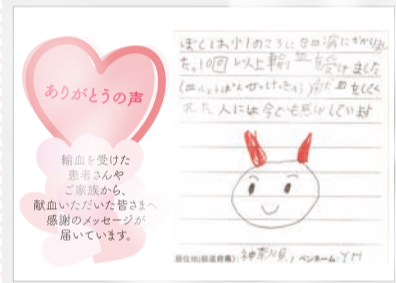 ありがとうの声
輸血を受けた
患者さんや
ご家族から、
献血いただいた皆さまへ
感謝のメッセージが
届いています。
ぼくは小1のころに白血病にかかりまし
た。10回以上輸血を受けました
(血しょうばんせっけっきゅう)献血をしてく
れた人には今でも感しゃしています
居住地(都道府県) 神奈川県 / ペンネーム YM